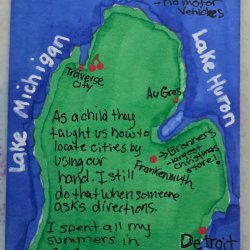 - No motor
vehicles
Lake Michigan
Lake Huron
Traverse
City
Au Gres
As a child they
taught us how to
locate cities by
using our
hand. I still
do that when someone
asks directions.
I spent all my
summers in
Bronners
largest
christmas
store!
Frankenmuth
Detroit